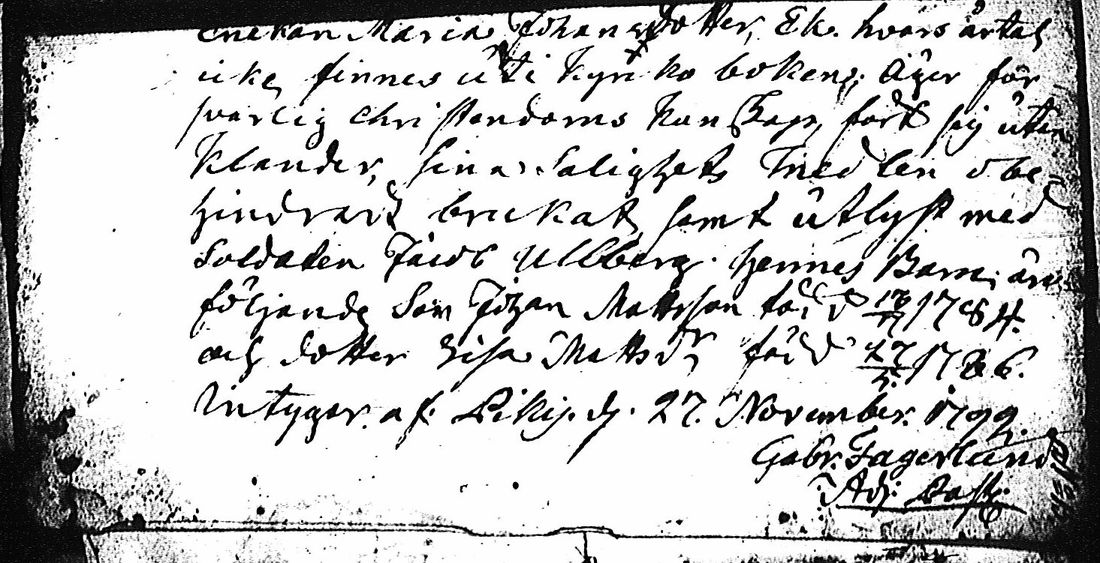 Enckan Maria Johansdotter, Ek. hvars årtal
icke finnes uti Kyrko boken, Äger för
svarlig Christendoms Kunskap, fört sig utan
Klander, sina Salighets medlen obe-
hindradt brukat, samt utlyst med
Soldaten Jacob Ullberg. hennes Barn äro
följande Son Johan Mattsson född 1784.
och dotter Lisa Mattsdr född 1786.
Intygar af Pikis d. 27. November. 1799.
Gabr. Fagerlund
Adj. Past.